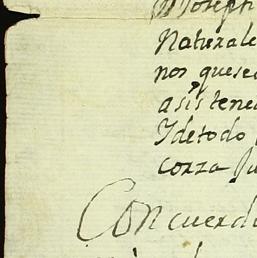 Joseph
Naturale
nos quese
asistenc
Y de todo
corra Ju
Concuerd